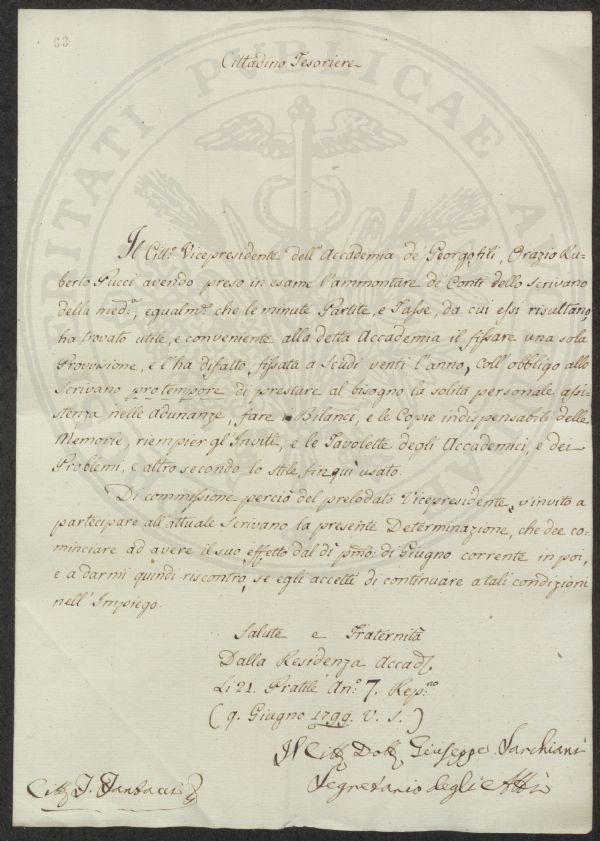 63
Cittadino Tesoriere
Il Citt.º Vicepresidente dell'Accademia de' Georgofili, Orazio Ru-
berto Pucci avendo preso in esame l'ammontare de' Conti dello Scrivano
della med.ª, egualm.e che le minute Partite, e Tasse, da cui essi risultano,
ha trovato utile, e conveniente alla detta Accademia il fissare una sola
Provisione, e l'ha difatto fissata a Scudi venti l'anno, coll'obbligo allo
Scrivano pro tempore di prestare al bisogno la solita personale assi-
stenza nelle Adunanze, fare i Bilanci, e le Copie indispensabili delle
Memorie, riempier gl'Inviti, e le Tavolette degli Accademici, e dei
Problemi, e altro secondo lo stile fin quì usato.
Di commissione perciò del prelodato Vicepresidente, v'invito a
partecipare all'attuale Scrivano la presente Determinazione, che dee co-
minciare ad avere il suo effetto dal dì pmo: di Giugno corrente in poi,
e a darmi quindi riscontro, se egli accetti di continuare a tali condizioni
nell'Impiego.
Salute e Fraternità
Dalla Residenza Accad.
Li 21. Pratile An.º 7. Rep.no
(9. Giugno 1799. V. S.)
Il Citt. Dott. Giuseppe Sarchiani
Segretario degli Atti
Citt. J. Fantacci